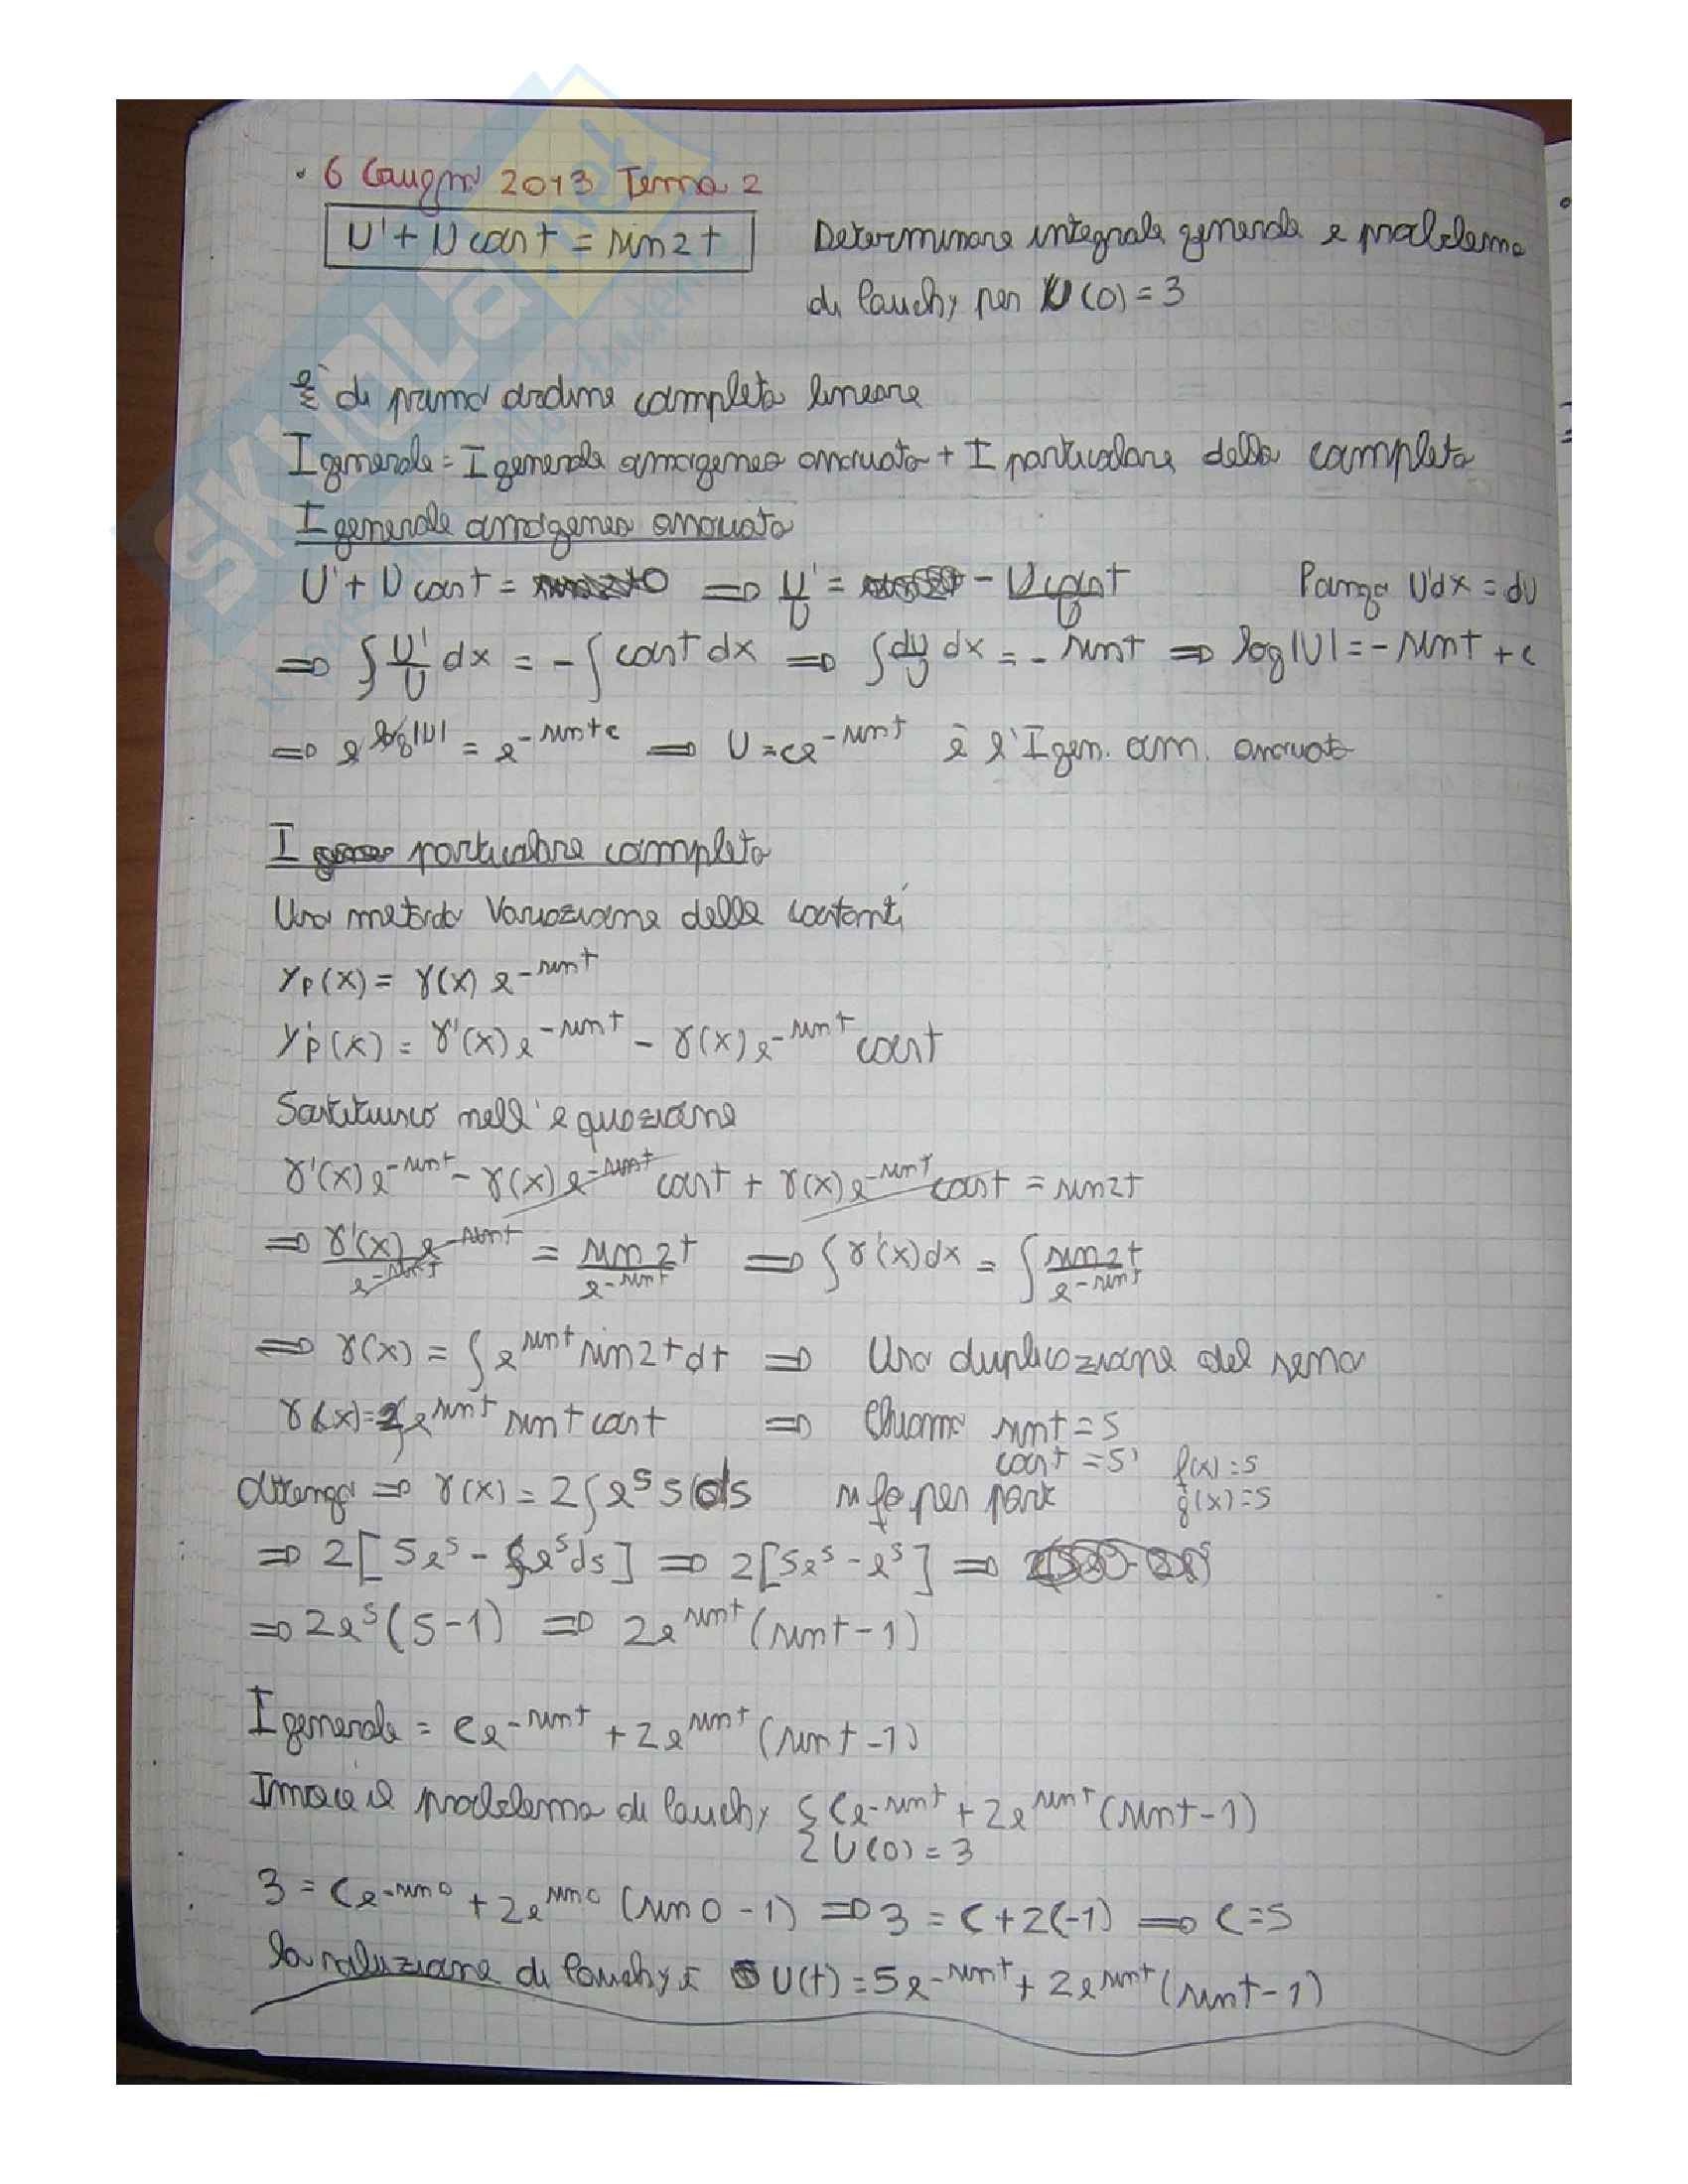 6 Giugno 2013 Tema 2
U' + U cos t = sin 2t Determinare integrale generale e problema
di Cauchy per U(0) = 3
è di primo ordine completa lineare
I generale = I generale omogenea associata + I particolare della completa
I generale omogenea associata
U' + U cos t = 0 ⇒ U'/U = - U cos t/U Pongo U'dx = dU
⇒ ∫ U'/U dx = - ∫ cos t dx ⇒ ∫ dU/U dx = - sin t ⇒ log|U| = - sin t + c
⇒ e^log|U| = e^(- sin t + c) ⇒ U = ce^(- sin t) è l'I gen. om. associata
I particolare completa
Uso metodo Variazione delle costanti
Yp(x) = γ(x) e^(- sin t)
Y'p(x) = γ'(x) e^(- sin t) - γ(x) e^(- sin t) cos t
Sostituisco nell'equazione
γ'(x) e^(- sin t) - γ(x) e^(- sin t) cos t + γ(x) e^(- sin t) cos t = sin 2t
⇒ γ'(x) e^(- sin t)/e^(- sin t) = sin 2t/e^(- sin t) ⇒ ∫ γ'(x) dx = ∫ sin 2t/e^(- sin t)
⇒ γ(x) = ∫ e^(sin t) sin 2t dt ⇒ Uso duplicazione del seno
γ(x) = 2∫ e^(sin t) sin t cos t ⇒ Chiamo sin t = s
cos t = s' f(x) = s
Ottengo ⇒ γ(x) = 2 ∫ e^s s ds si fa per parti g(x) = s
⇒ 2[s e^s - ∫ e^s ds] ⇒ 2[s e^s - e^s] ⇒
⇒ 2e^s (s - 1) ⇒ 2e^(sin t) (sin t - 1)
I generale = ce^(- sin t) + 2e^(sin t) (sin t - 1)
il problema di Cauchy { ce^(- sin t) + 2e^(sin t) (sin t - 1)
U(0) = 3
3 = ce^(- sin 0) + 2e^(sin 0) (sin 0 - 1) ⇒ 3 = c + 2(-1) ⇒ c = 5
la soluzione di Cauchy è U(t) = 5e^(- sin t) + 2e^(sin t) (sin t - 1)